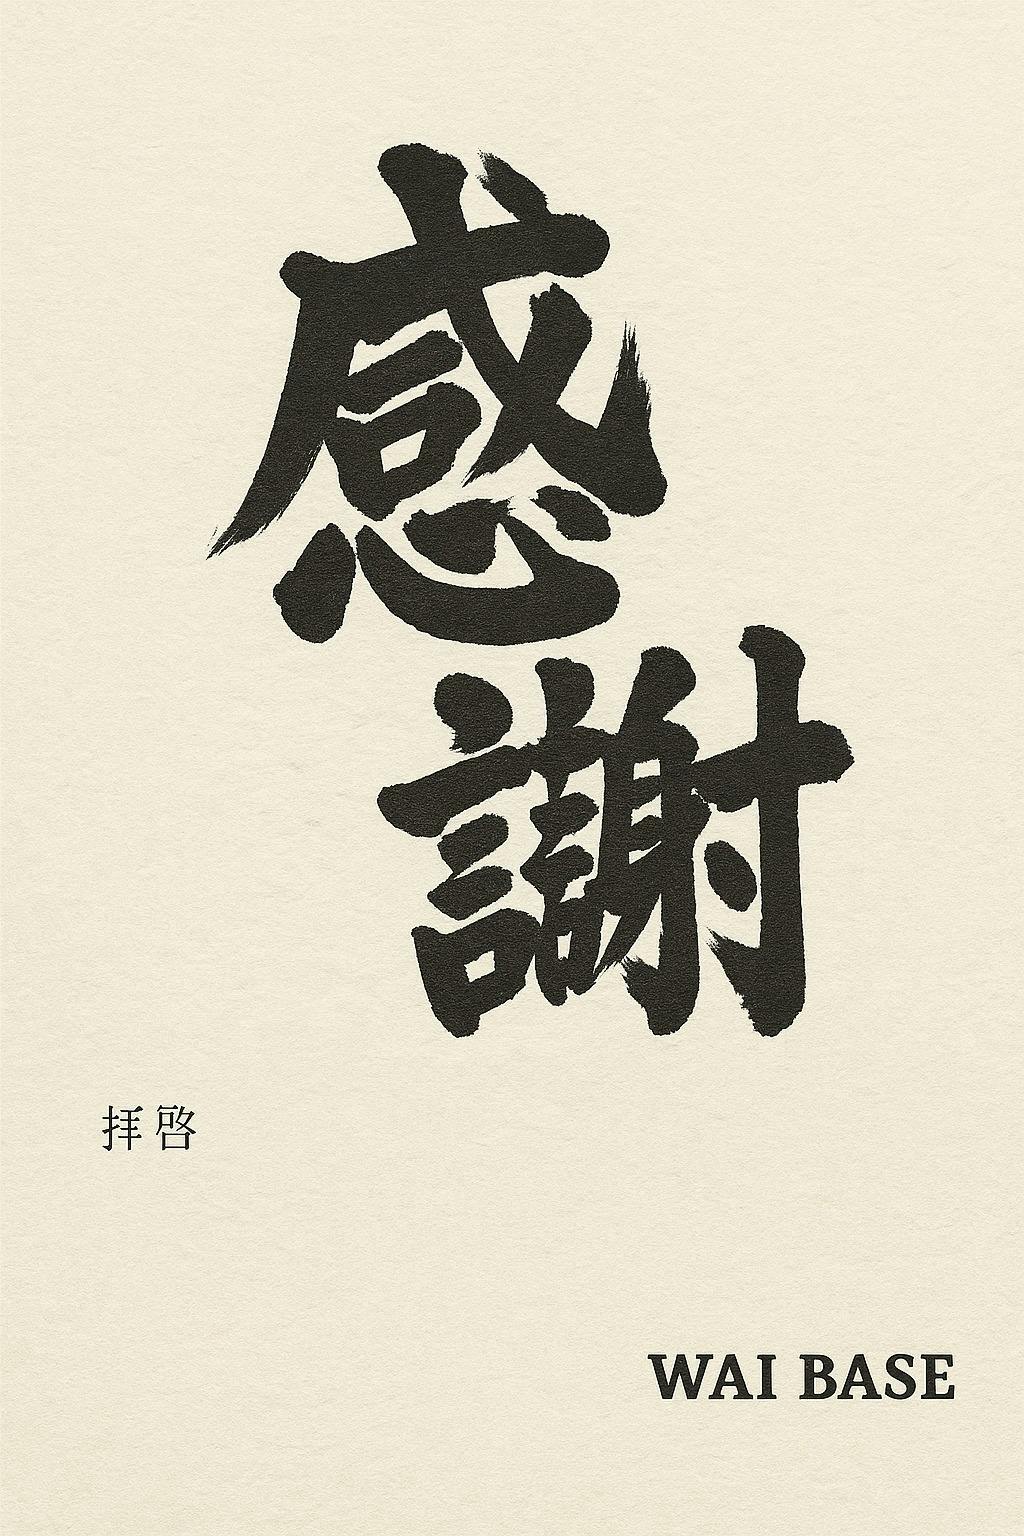 感
謝
拝啓
WAI BASE